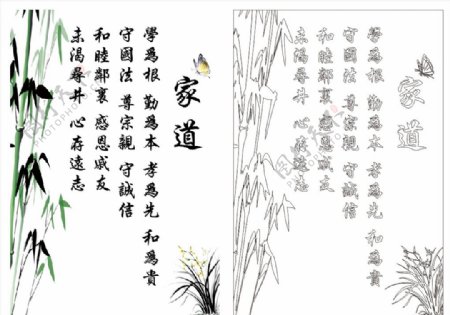 家道
學爲根 勤爲本 孝爲先 和爲貴
守國法 尊宗親 守誠信
和睦鄰裏 感恩戚友
未渴尋井 心存遠志
家道
學爲根 勤爲本 孝爲先 和爲貴
守國法 尊宗親 守誠信
和睦鄰裏 感恩戚友
未渴尋井 心存遠志